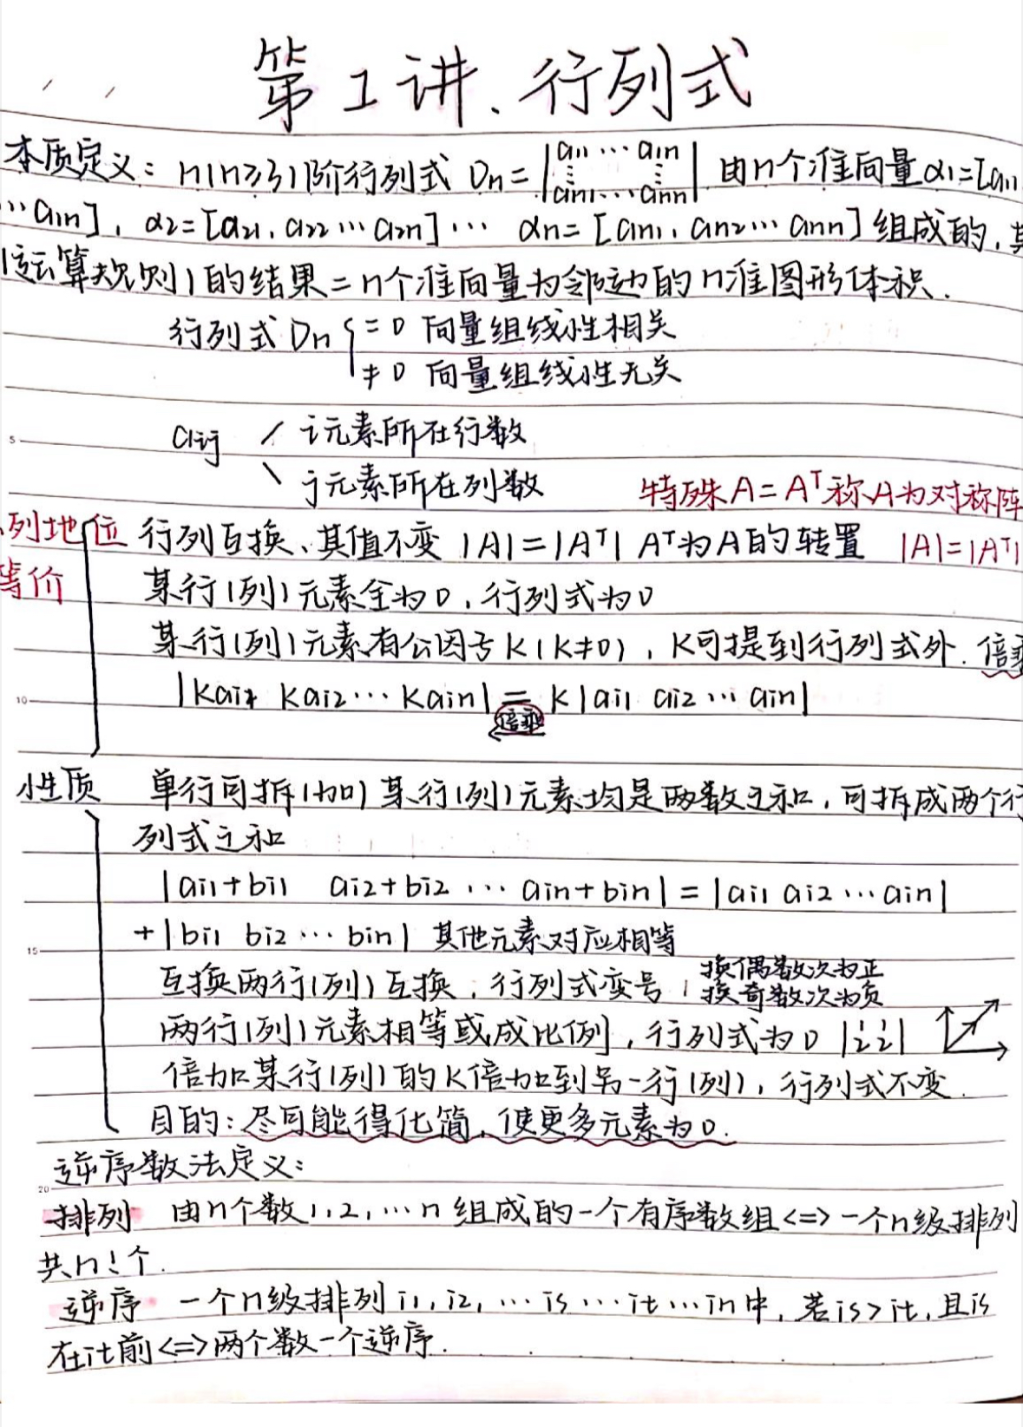 第1讲、行列式
本质定义: n(n≥3)阶行列式 Dn=|a11 ⋯ a1n ⋮ ⋮ an1 ⋯ ann| 由n个准向量α1=[a11
⋯a1n], α2=[a21, a22⋯a2n]⋯ αn=[an1, an2⋯ann]组成的,其
(运算规则)的结果=n个准向量为邻边的n准图形体积.
行列式 Dn { =0 向量组线性相关
≠0 向量组线性无关
aij / i元素所在行数
\ j元素所在列数
特殊A=Aᵀ称A为对称阵
列地位 行列互换、其值不变 |A|=|Aᵀ| Aᵀ为A的转置 |A|=|Aᵀ|
等价 某行(列)元素全为0,行列式为0
某行(列)元素有公因子k(k≠0),k可提到行列式外.倍乘
|kai1 kai2⋯kain| = k|ai1 ai2⋯ain|
倍乘
性质 单行可拆(加)某行(列)元素均是两数之和,可拆成两个行
列式之和
|ai1+bi1 ai2+bi2 ⋯ ain+bin|=|ai1 ai2⋯ain|
+|bi1 bi2⋯bin| 其他元素对应相等
互换两行(列)互换,行列式变号, 换偶数次为正
换奇数次为负
两行(列)元素相等或成比例,行列式为0 |1 1 2 2|
倍加某行(列)的k倍加到另一行(列),行列式不变.
目的:尽可能得化简,使更多元素为0.
逆序数法定义:
排列 由n个数1,2,⋯n组成的一个有序数组<=>一个n级排列
共n!个.
逆序 一个n级排列i1,i2,⋯is⋯it⋯in中,若is>it,且is
在it前<=>两个数一个逆序.